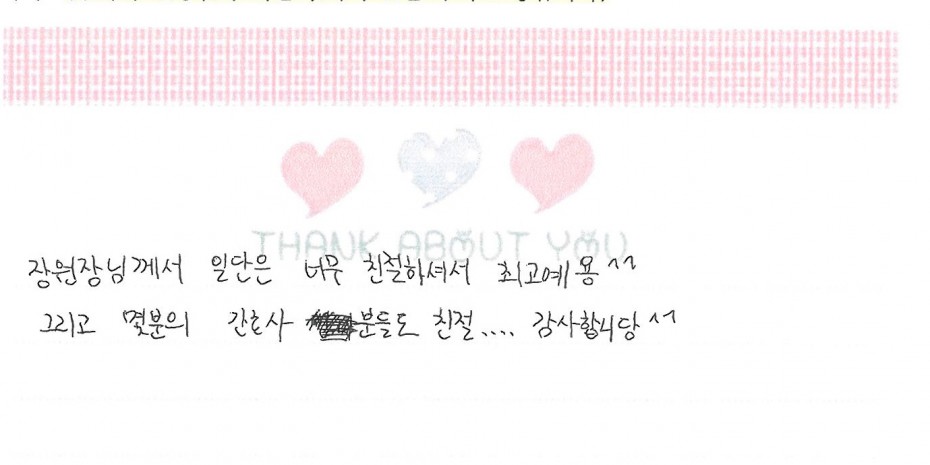 THANK ABOUT YOU
장원장님께서 일단은 너무 친절하셔서 최고예용^^
그리고 몇분의 간호사 분들도 친절.... 감사합니당^^